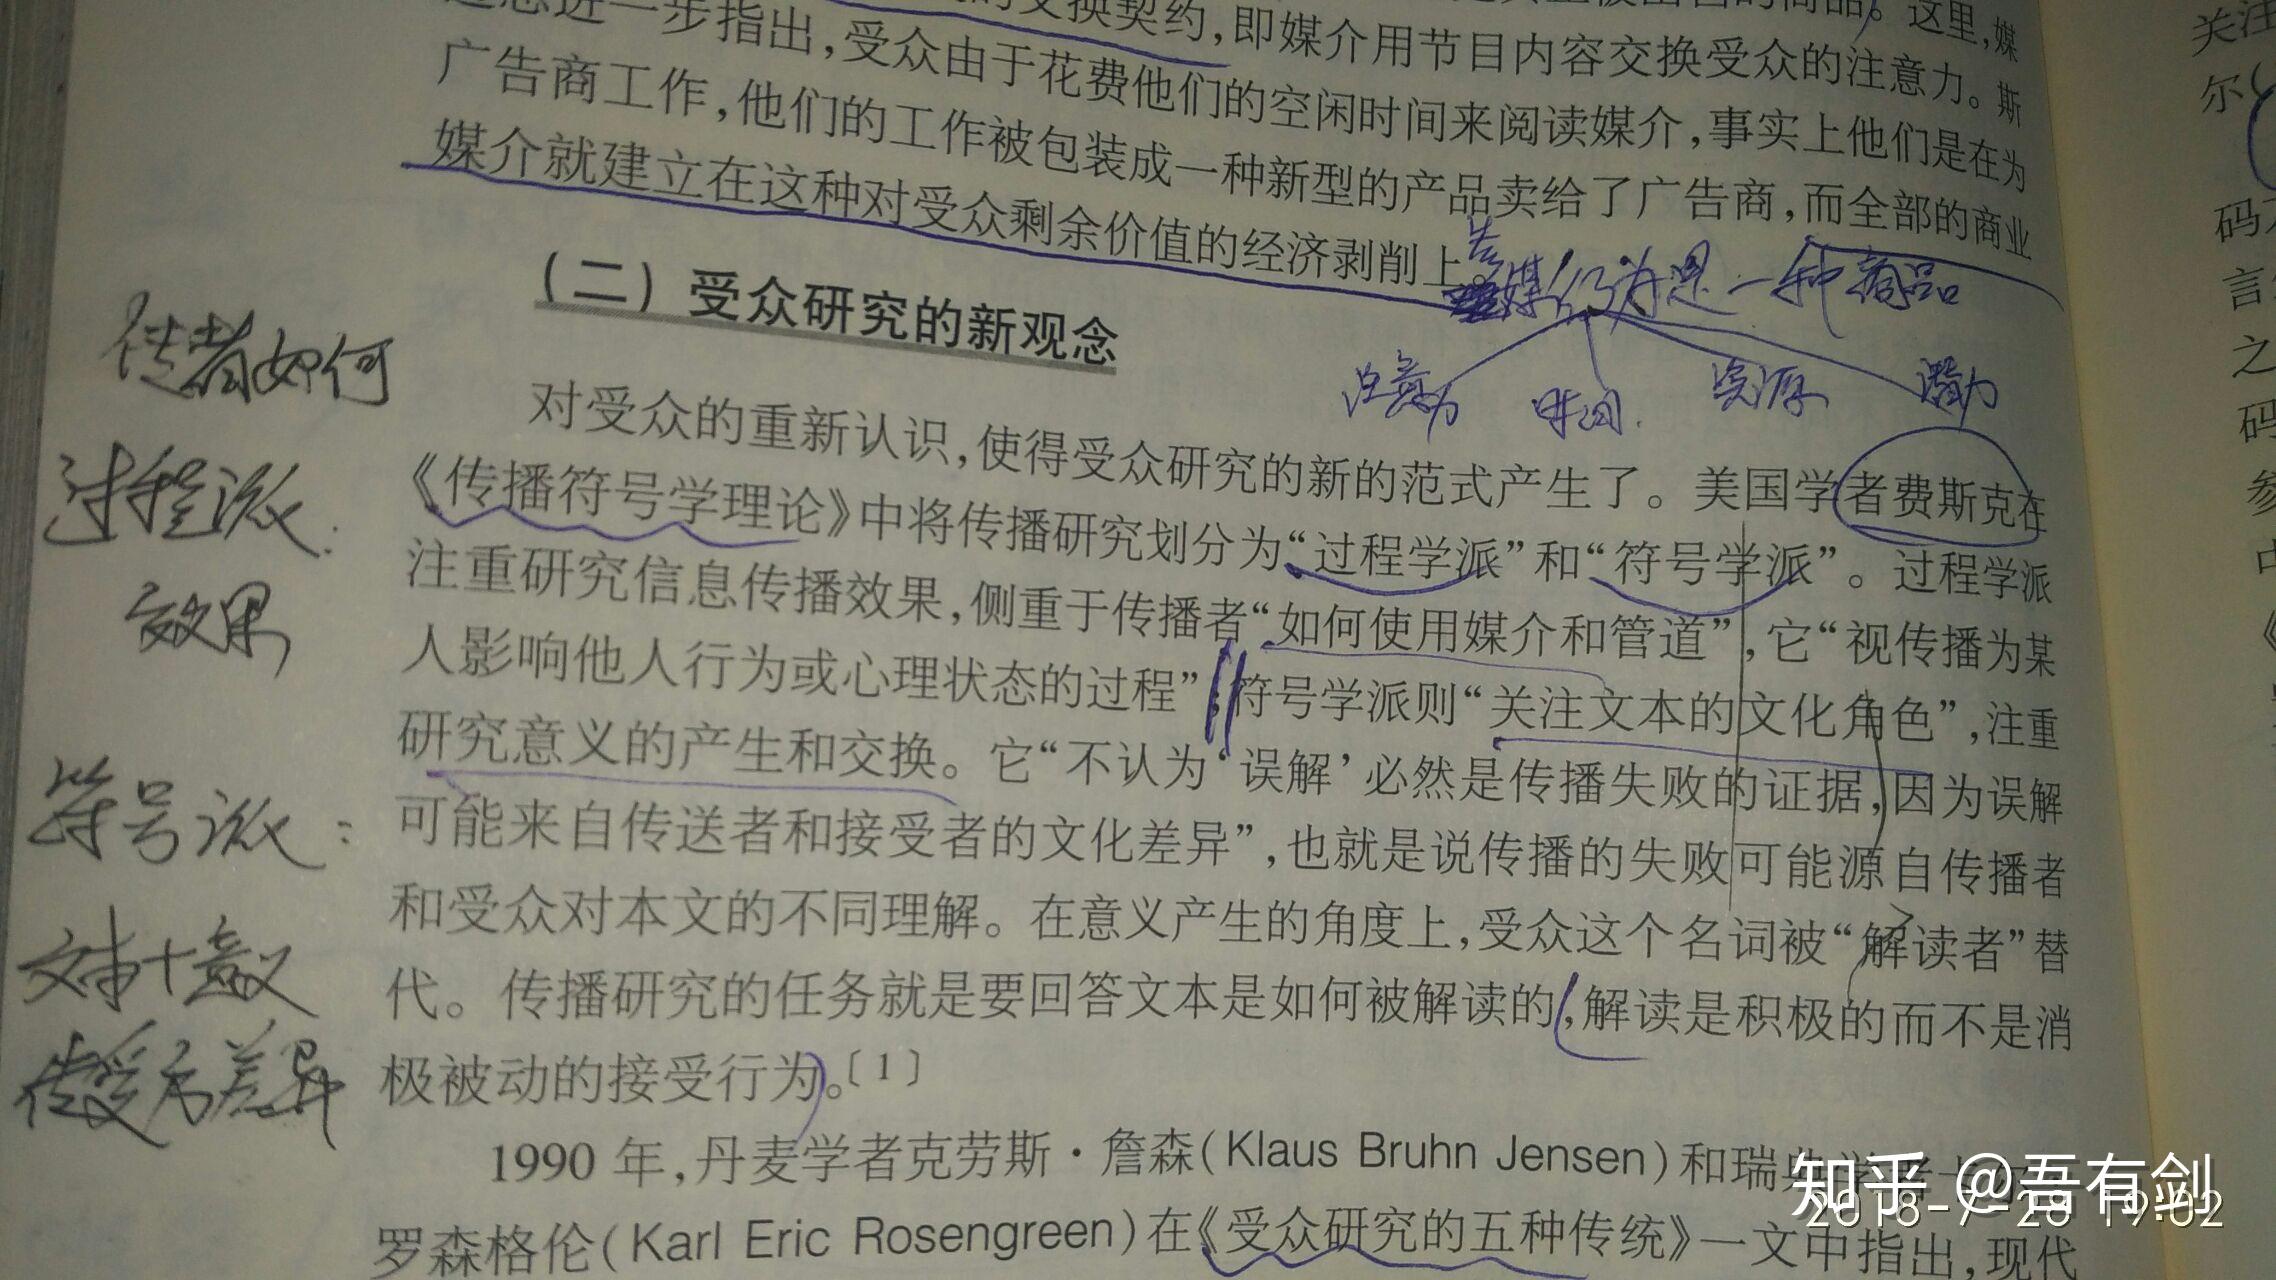 的交换契约,即媒介用节目内容交换受众的注意力。斯
进一步指出,受众由于花费他们的空闲时间来阅读媒介,事实上他们是在为
广告商工作,他们的工作被包装成一种新型的产品卖给了广告商,而全部的商业
媒介就建立在这种对受众剩余价值的经济剥削上。
媒行为是一种商品
注意力 时间 资源 潜力
(二) 受众研究的新观念
对受众的重新认识,使得受众研究的新的范式产生了。美国学者费斯克在
《传播符号学理论》中将传播研究划分为“过程学派”和“符号学派”。过程学派
注重研究信息传播效果,侧重于传播者“如何使用媒介和管道”,它“视传播为某
人影响他人行为或心理状态的过程”;符号学派则“关注文本的文化角色”,注重
研究意义的产生和交换。它“不认为‘误解’必然是传播失败的证据,因为误解
可能来自传送者和接受者的文化差异”,也就是说传播的失败可能源自传播者
和受众对本文的不同理解。在意义产生的角度上,受众这个名词被“解读者”替
代。传播研究的任务就是要回答文本是如何被解读的,解读是积极的而不是消
极被动的接受行为。〔1〕
1990 年,丹麦学者克劳斯·詹森(Klaus Bruhn Jensen)和瑞典学者卡尔·
罗森格伦(Karl Eric Rosengreen)在《受众研究的五种传统》一文中指出,现代
传者如何
过程派:
效果
符号派:
文本+意义
传受差异
关注
尔(
码
言
之
码
参
知乎 @吾有剑
2018-7-28 19:02